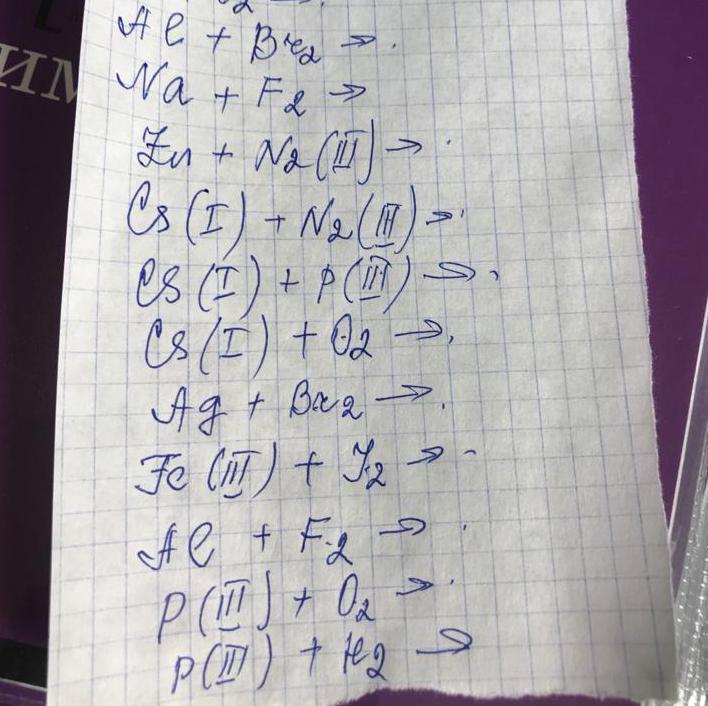 Al + Br2 →
Na + F2 →
Zn + N2(III) →
Cs(I) + N2(III) →
Cs(I) + P(III) →
Cs(I) + O2 →
Ag + Br2 →
Fe(III) + J2 →
Al + F2 →
P(III) + O2 →
P(III) + H2 →